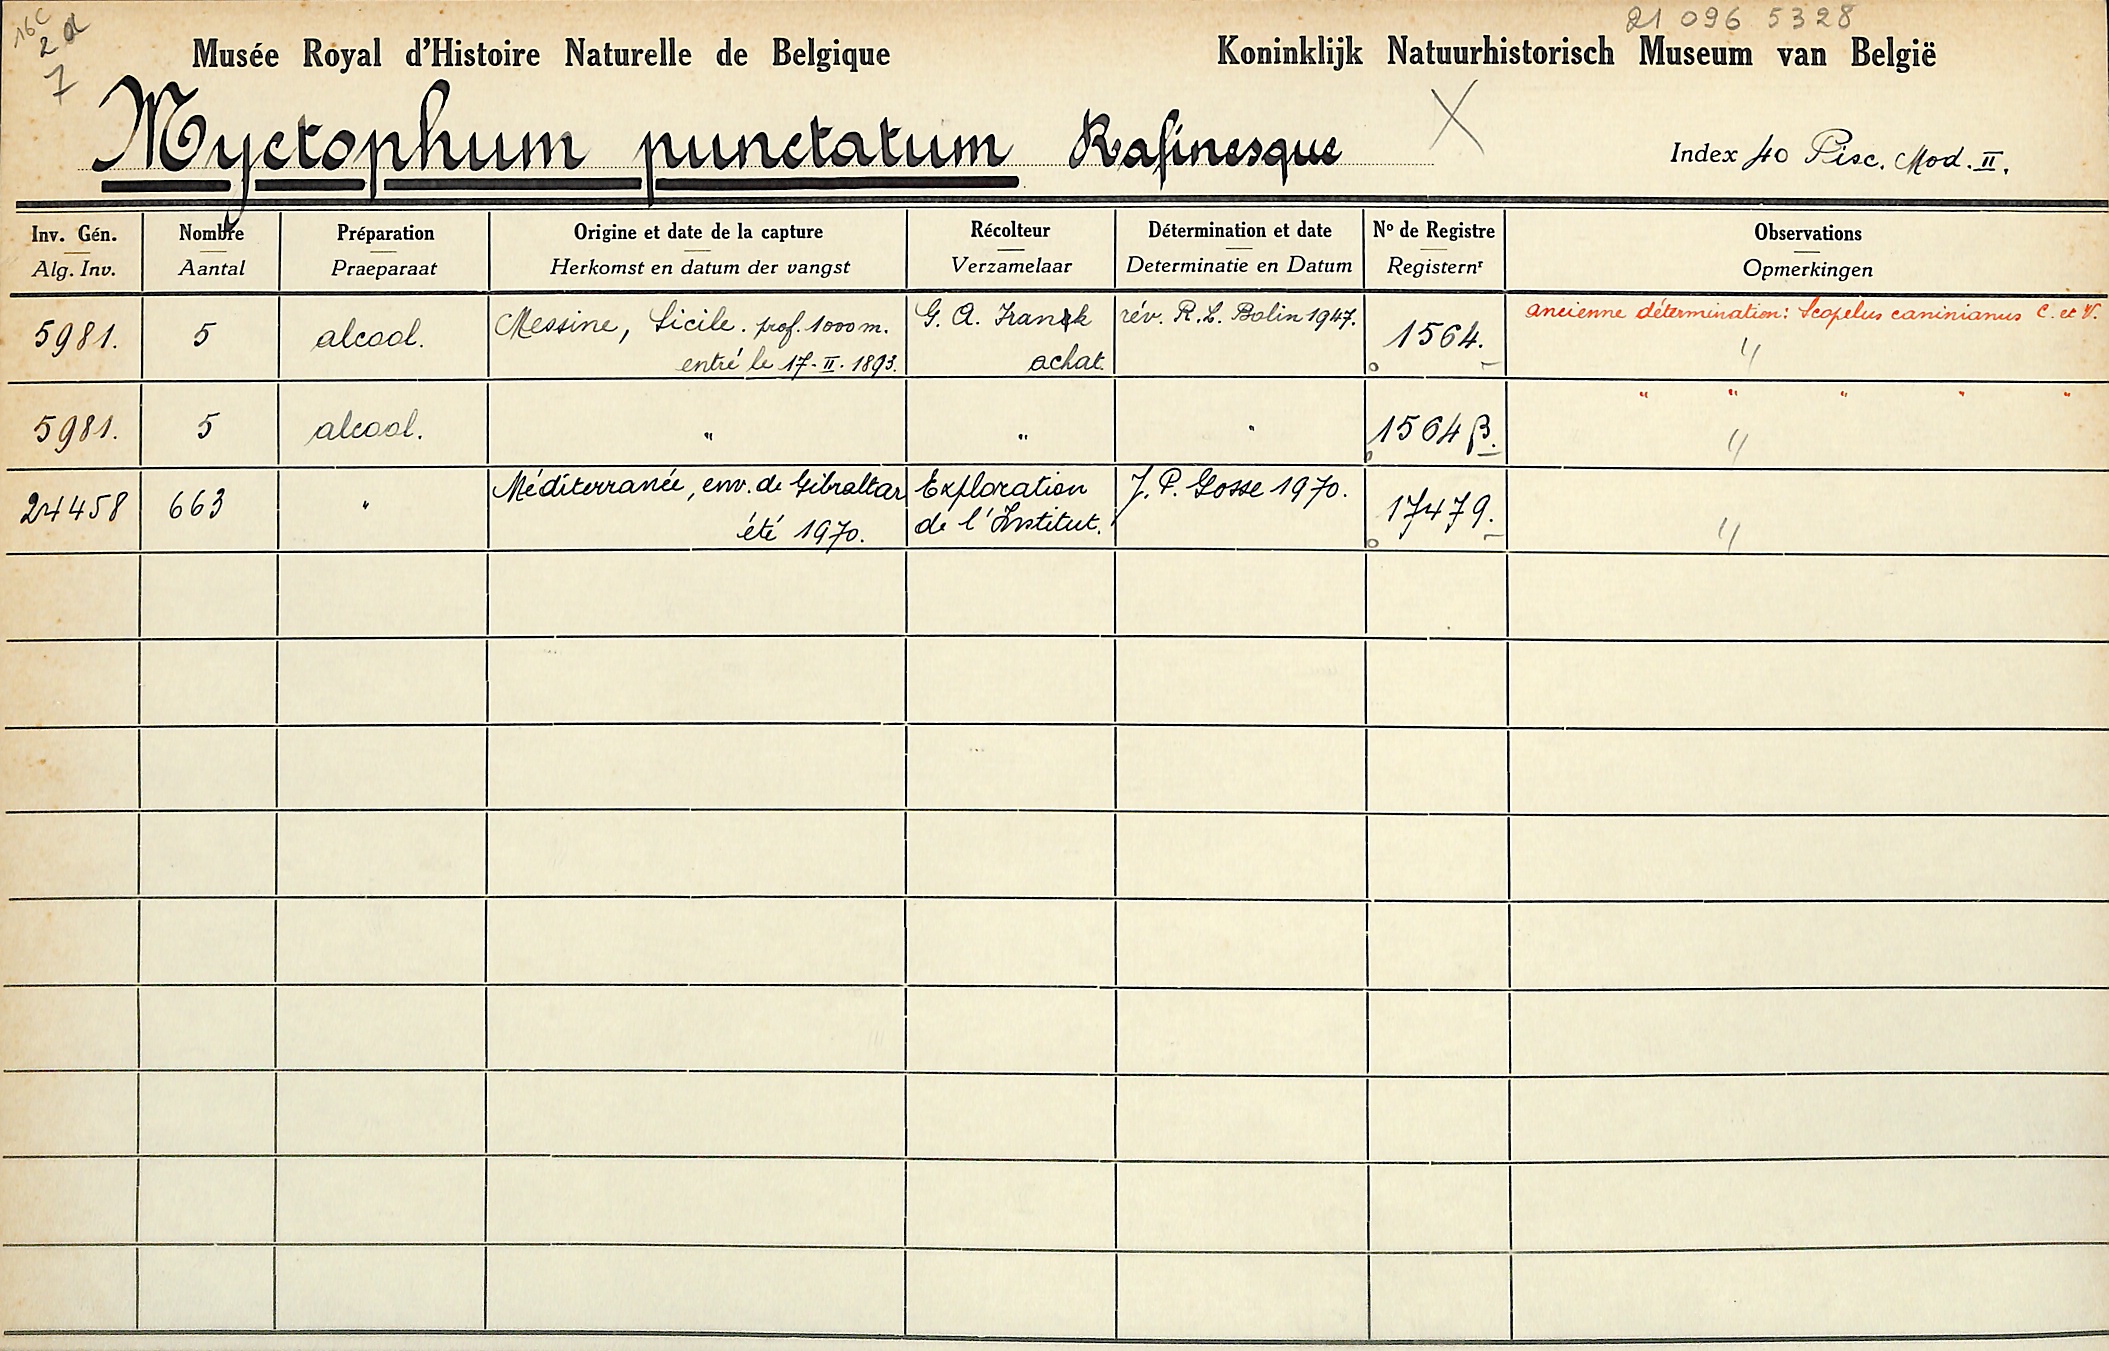 16C
2 a
7
21 096 5328
Musée Royal d'Histoire Naturelle de Belgique Koninklijk Natuurhistorisch Museum van België
Myctophum punctatum Rafinesque X Index 40 Pisc. Mod. II.
Inv. Gén. Nombre Préparation Origine et date de la capture Récolteur Détermination et date Nº de Registre Observations
Alg. Inv. Aantal Praeparaat Herkomst en datum der vangst Verzamelaar Determinatie en Datum Registernr Opmerkingen
5981. 5 alcool. Messine, Sicile. prof. 1000 m. G. A. Franck rév. R. L. Bolin 1947. 1564. ancienne détermination: Scopelus caninianus C. et V.
entré le 17-II-1893. achat. 4
5981. 5 alcool. " " " 1564 β. " " " " "
4
24458 663 " Méditerranée, env. de Gibraltar Exploration J. P. Gosse 1970. 17479.
été 1970. de l'Institut. 4